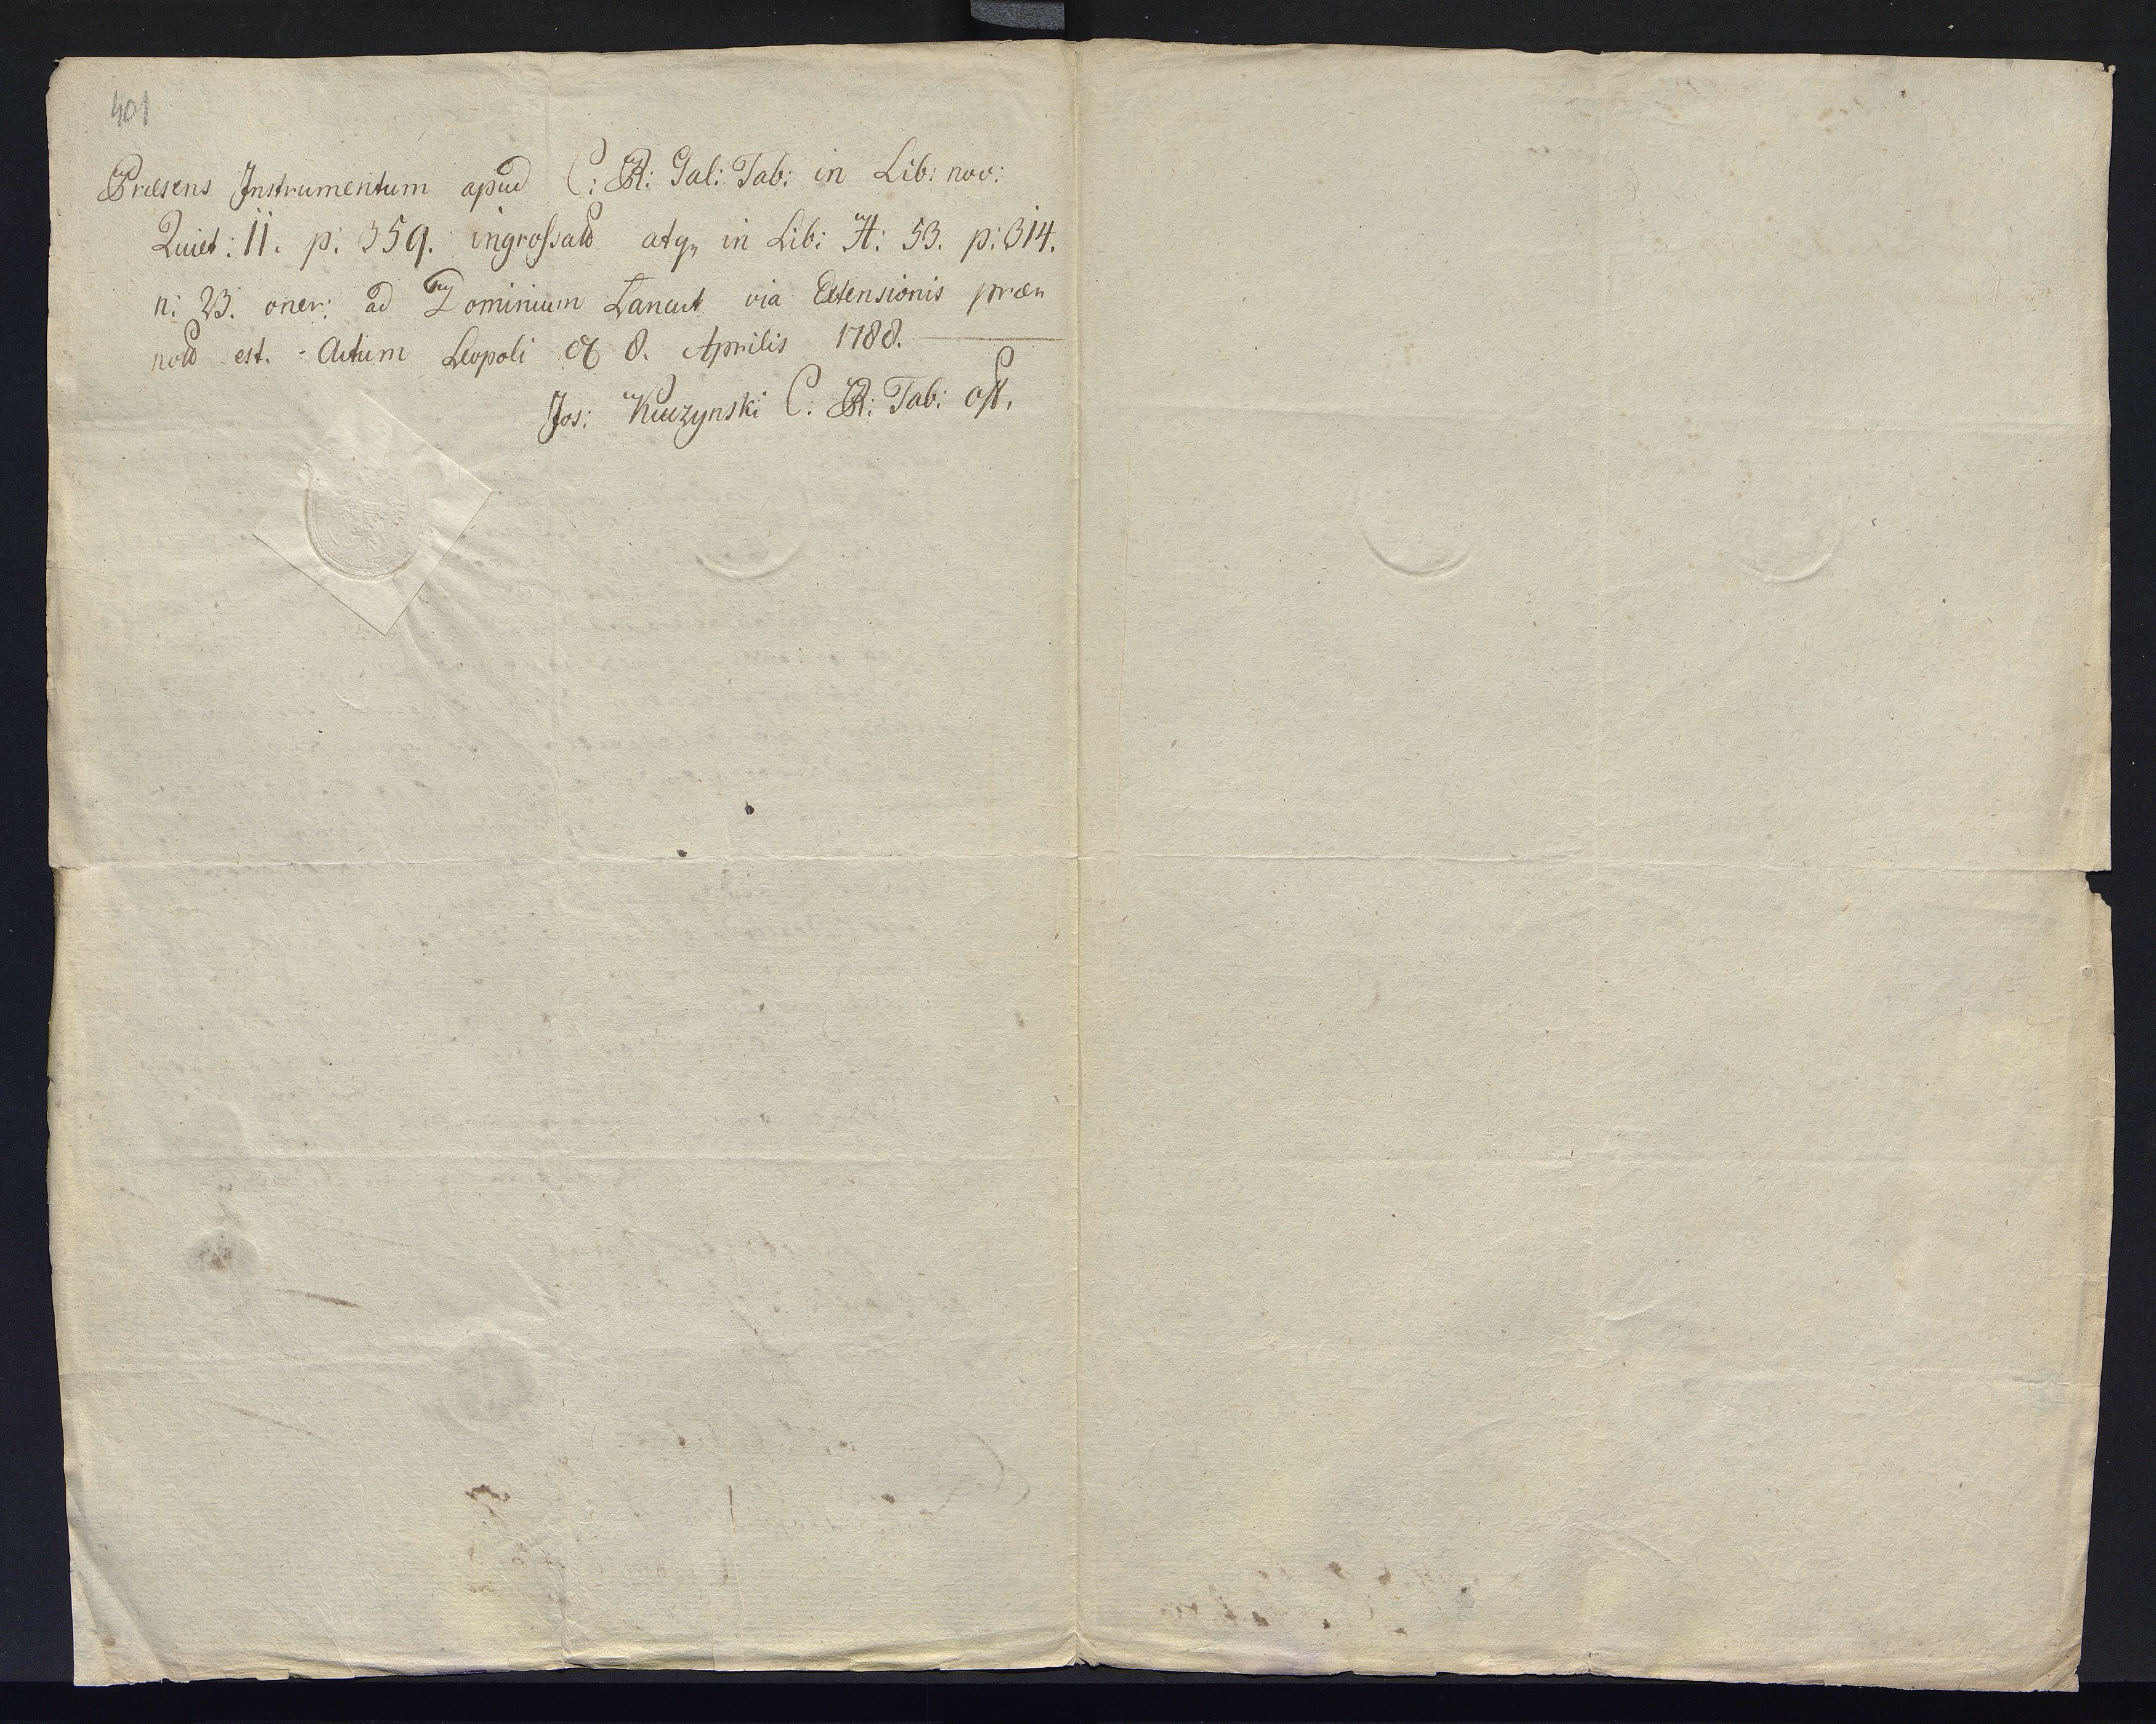 401
Præsens Instrumentum apud C: R: Gal: Tab: in Lib: nov:
Quiet: 11. p: 359. ingrossatũ atq, in Lib: H: 53. p: 314.
n: 23. oner: ad Dominium Lancut via Extensionis præ„
notũ est. - Actum Leopoli 8. Aprilis 1788.
Jos: Kuczynski C: R: Tab: off.